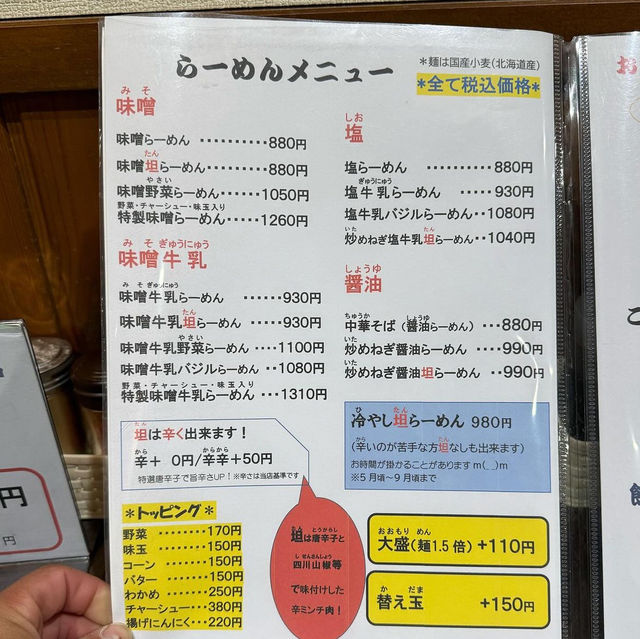 らーめんメニュー
*麺は国産小麦(北海道産)
*全て税込価格*
みそ
味噌
味噌らーめん ・・・・・・・・・・880円
たん
味噌坦らーめん・・・・・・・・・・880円
やさい
味噌野菜らーめん・・・・・1050円
野菜・チャーシュー・味玉入り
特製味噌らーめん・・・・・1260円
みそぎゅうにゅう
味噌牛乳
みそぎゅうにゅう
味噌牛乳らーめん ・・・・・・930円
たん
味噌牛乳坦らーめん ・・・・・930円
やさい
味噌牛乳野菜らーめん・・・・1100円
味噌牛乳バジルらーめん・・1080円
野菜・チャーシュー・味玉入り
特製味噌牛乳らーめん ・・・1310円
しお
塩
塩らーめん ・・・・・・・・・・880円
ぎゅうにゅう
塩牛乳らーめん ・・・・・930円
塩牛乳バジルらーめん・・1080円
いた たん
炒めねぎ塩牛乳坦らーめん・・1040円
しょうゆ
醤油
ちゅうか しょうゆ
中華そば(醤油らーめん) ・・・880円
いた
炒めねぎ醤油らーめん ・・・・990円
いた
炒めねぎ醤油坦らーめん ・・990円
たん
坦は辛く出来ます!
から からから
辛+ 0円/辛辛+50円
特選唐辛子で旨辛さUP!※辛さは当店基準です
ひ たん
冷やし坦らーめん 980円
から たん
(辛いのが苦手な方坦なしも出来ます)
お時間が掛かることがあります m(_ _)m
※5月頃~9月頃まで
*トッピング*
野菜 ・・・・・・・・170円
味玉 ・・・・・・・・150円
コーン ・・・・・・150円
バター ・・・・・・150円
わかめ ・・・・・・250円
チャーシュー・・・380円
揚げにんにく・・220円
たん とうがらし
坦は唐辛子と
しせんさんしょう
四川山椒等
で味付けした
辛ミンチ肉!
おおもり めん
大盛(麺1.5倍) +110円
か だま
替え玉 +150円
お
円
円